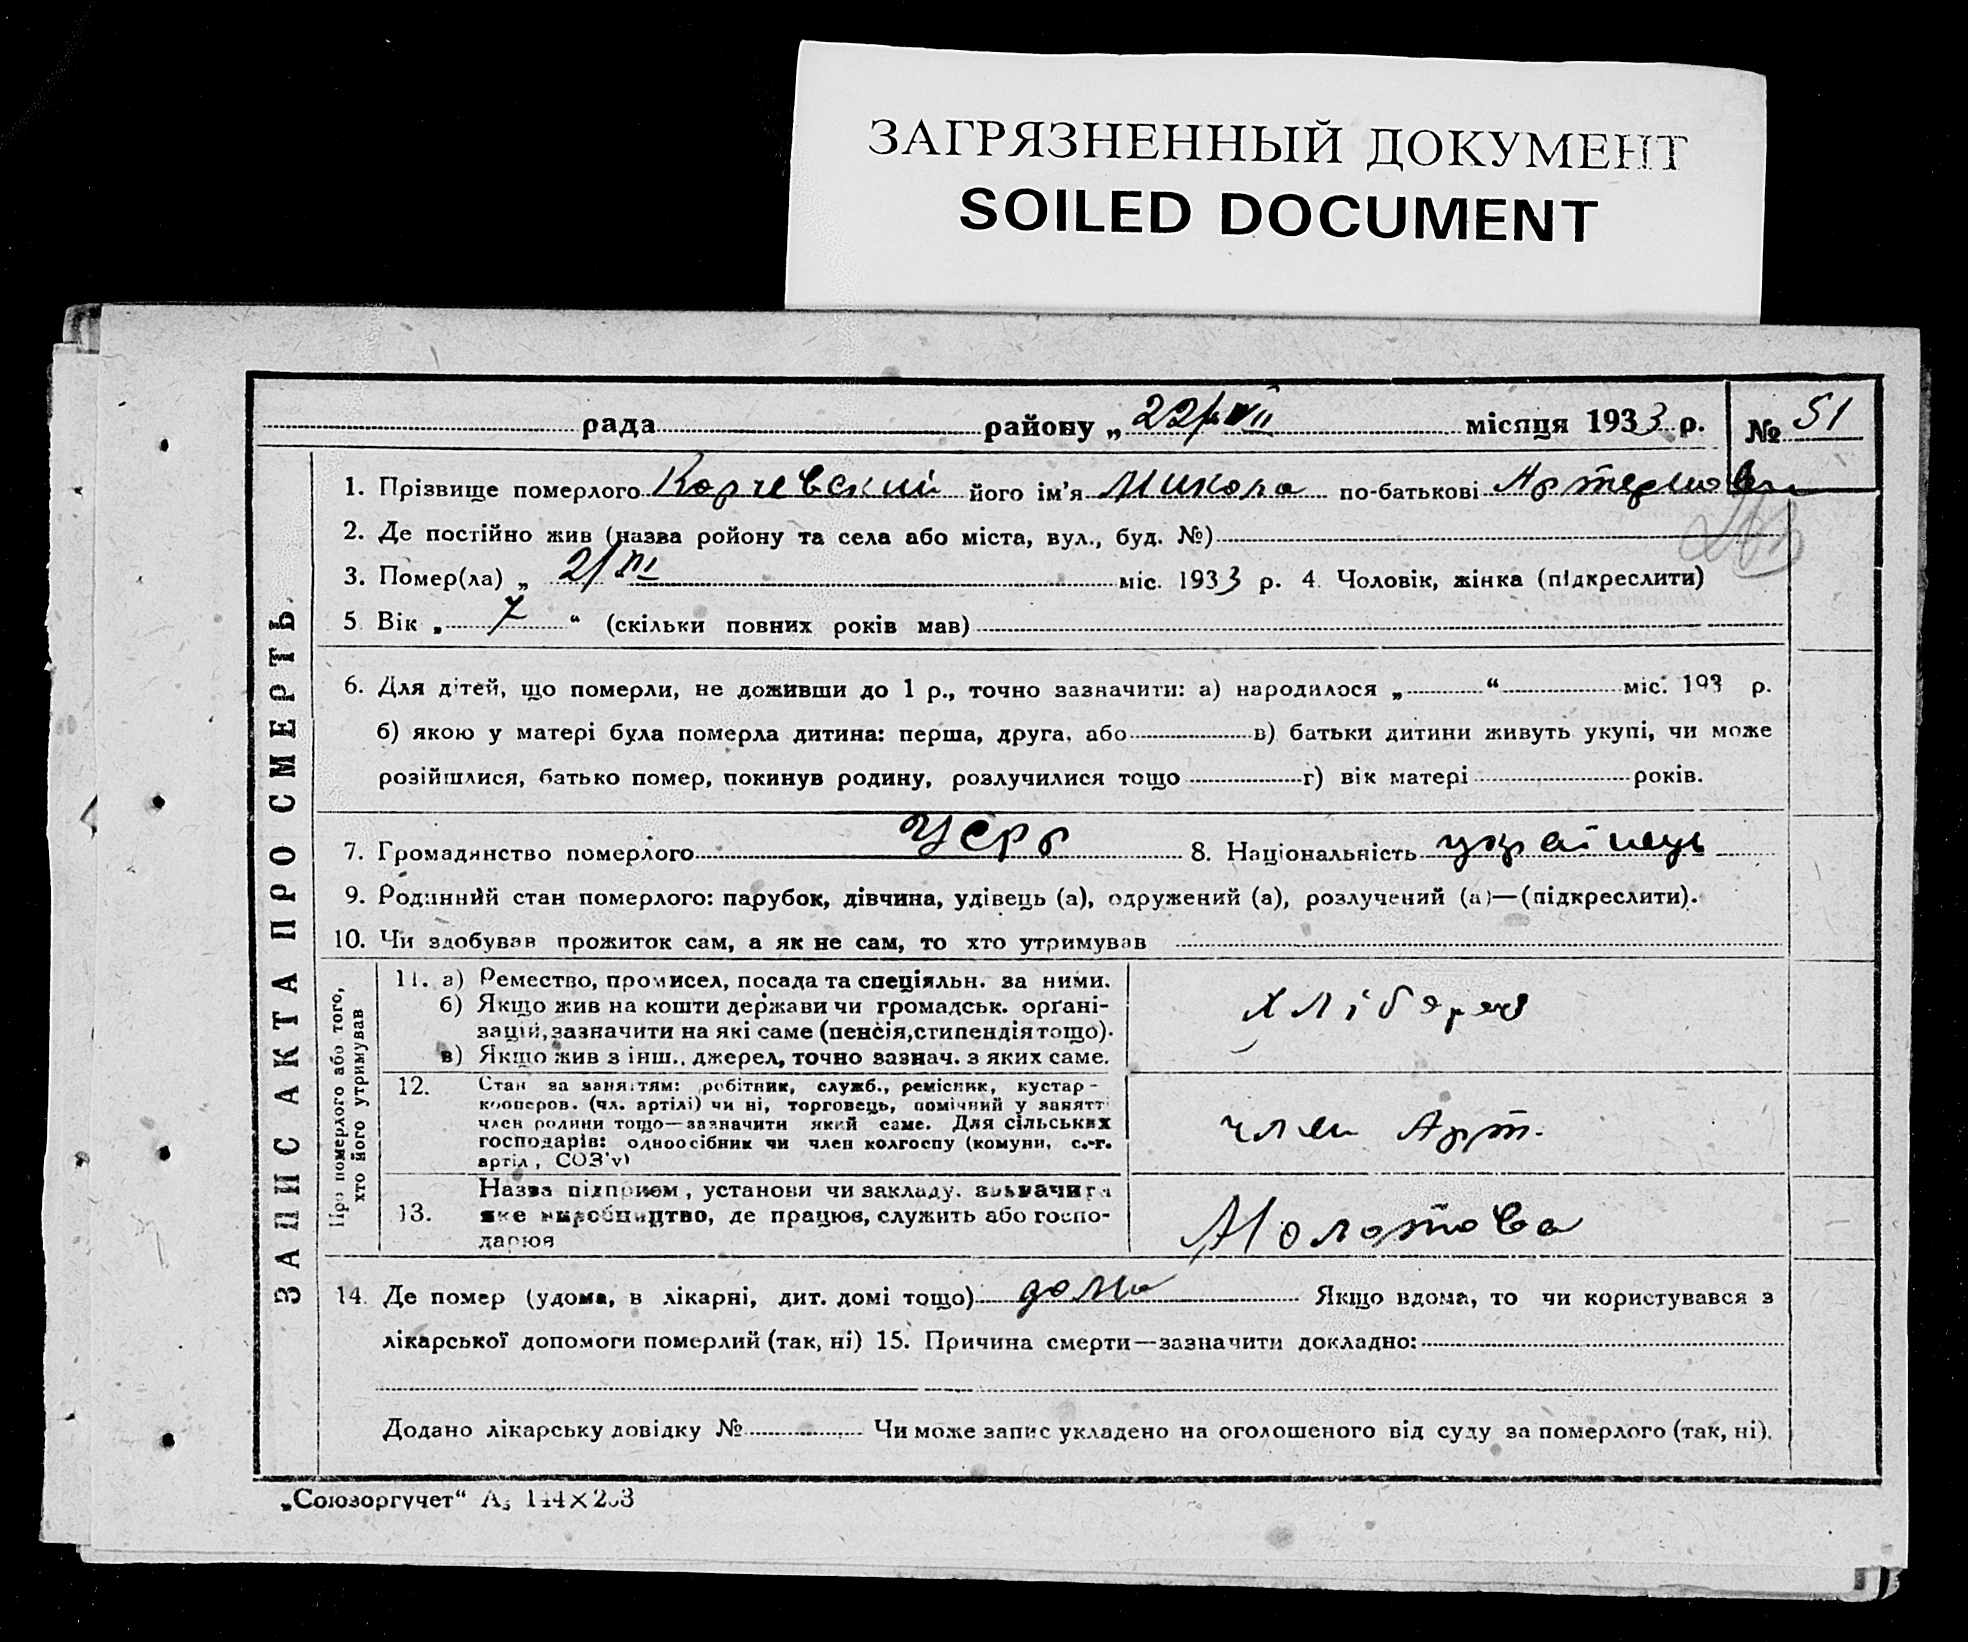 ЗАГРЯЗНЕННЫЙ ДОКУМЕНТ
SOILED DOCUMENT
рада районy „ 22/VII місяця 1933 р. № 51
ЗАПИС АКТА ПРО СМЕРТЬ
1. Прізвище померлого Корчевский його ім'я Микола по-батькові
2. Де постійно жив (назва ройону та села або міста, вул., буд. №)
3. Помер(ла) „ 21/ міс. 1933 р. 4. Чоловік, жінка (підкреслити)
5. Вік „ 7 “ (скільки повних років мав)
6. Для дітей, що померли, не доживши до 1 р., точно зазначити: а) народилося „ “ міс. 193 р.
б) якою у матері була померла дитина: перша, друга, або в) батьки дитини живуть укупі, чи може
розійшлися, батько помер, покинув родину, розлучилися тощо г) вік матері років.
7. Громадянство померлого УСРР 8. Національність українець
9. Родинний стан померлого: парубок, дівчина, удівець (а), одружений (а), розлучений (а)—(підкреслити).
10. Чи здобував прожиток сам, а як не сам, то хто утримував
Про померлого або того, хто його утримував
11. а) Ремество, промисел, посада та спеціяльн. за ними.
б) Якщо жив на кошти держави чи громадськ. орґані-
зацій, зазначити на які саме (пенсія, стипендія тощо).
в) Якщо жив з інш., джерел, точно зазнач. з яких саме.
хлібороб
12. Стан за заняттям: робітник, служб., ремісник, кустар-
кооперов. (чл. артілі) чи ні, торговець, помічний у занятті
член родини тощо—зазначити який саме. Для сільських
господарів: одноосібник чи член колгоспу (комуни, с.-г.
артіл, СОЗ'у)
член Арт.
13. Назва підприєм, установи чи закладу. зазначити
яке виробництво, де працюв, служить або госпо-
дарюв
Молотова
14. Де помер (удома, в лікарні, дит. домі тощо) дома Якщо вдома, то чи користувався з
лікарської допомоги померлий (так, ні) 15. Причина смерти—зазначити докладно:
Додано лікарську довідку № Чи може запис укладено на оголошеного від суду за померлого (так, ні).
„Союзоргучет“ А5 144×203